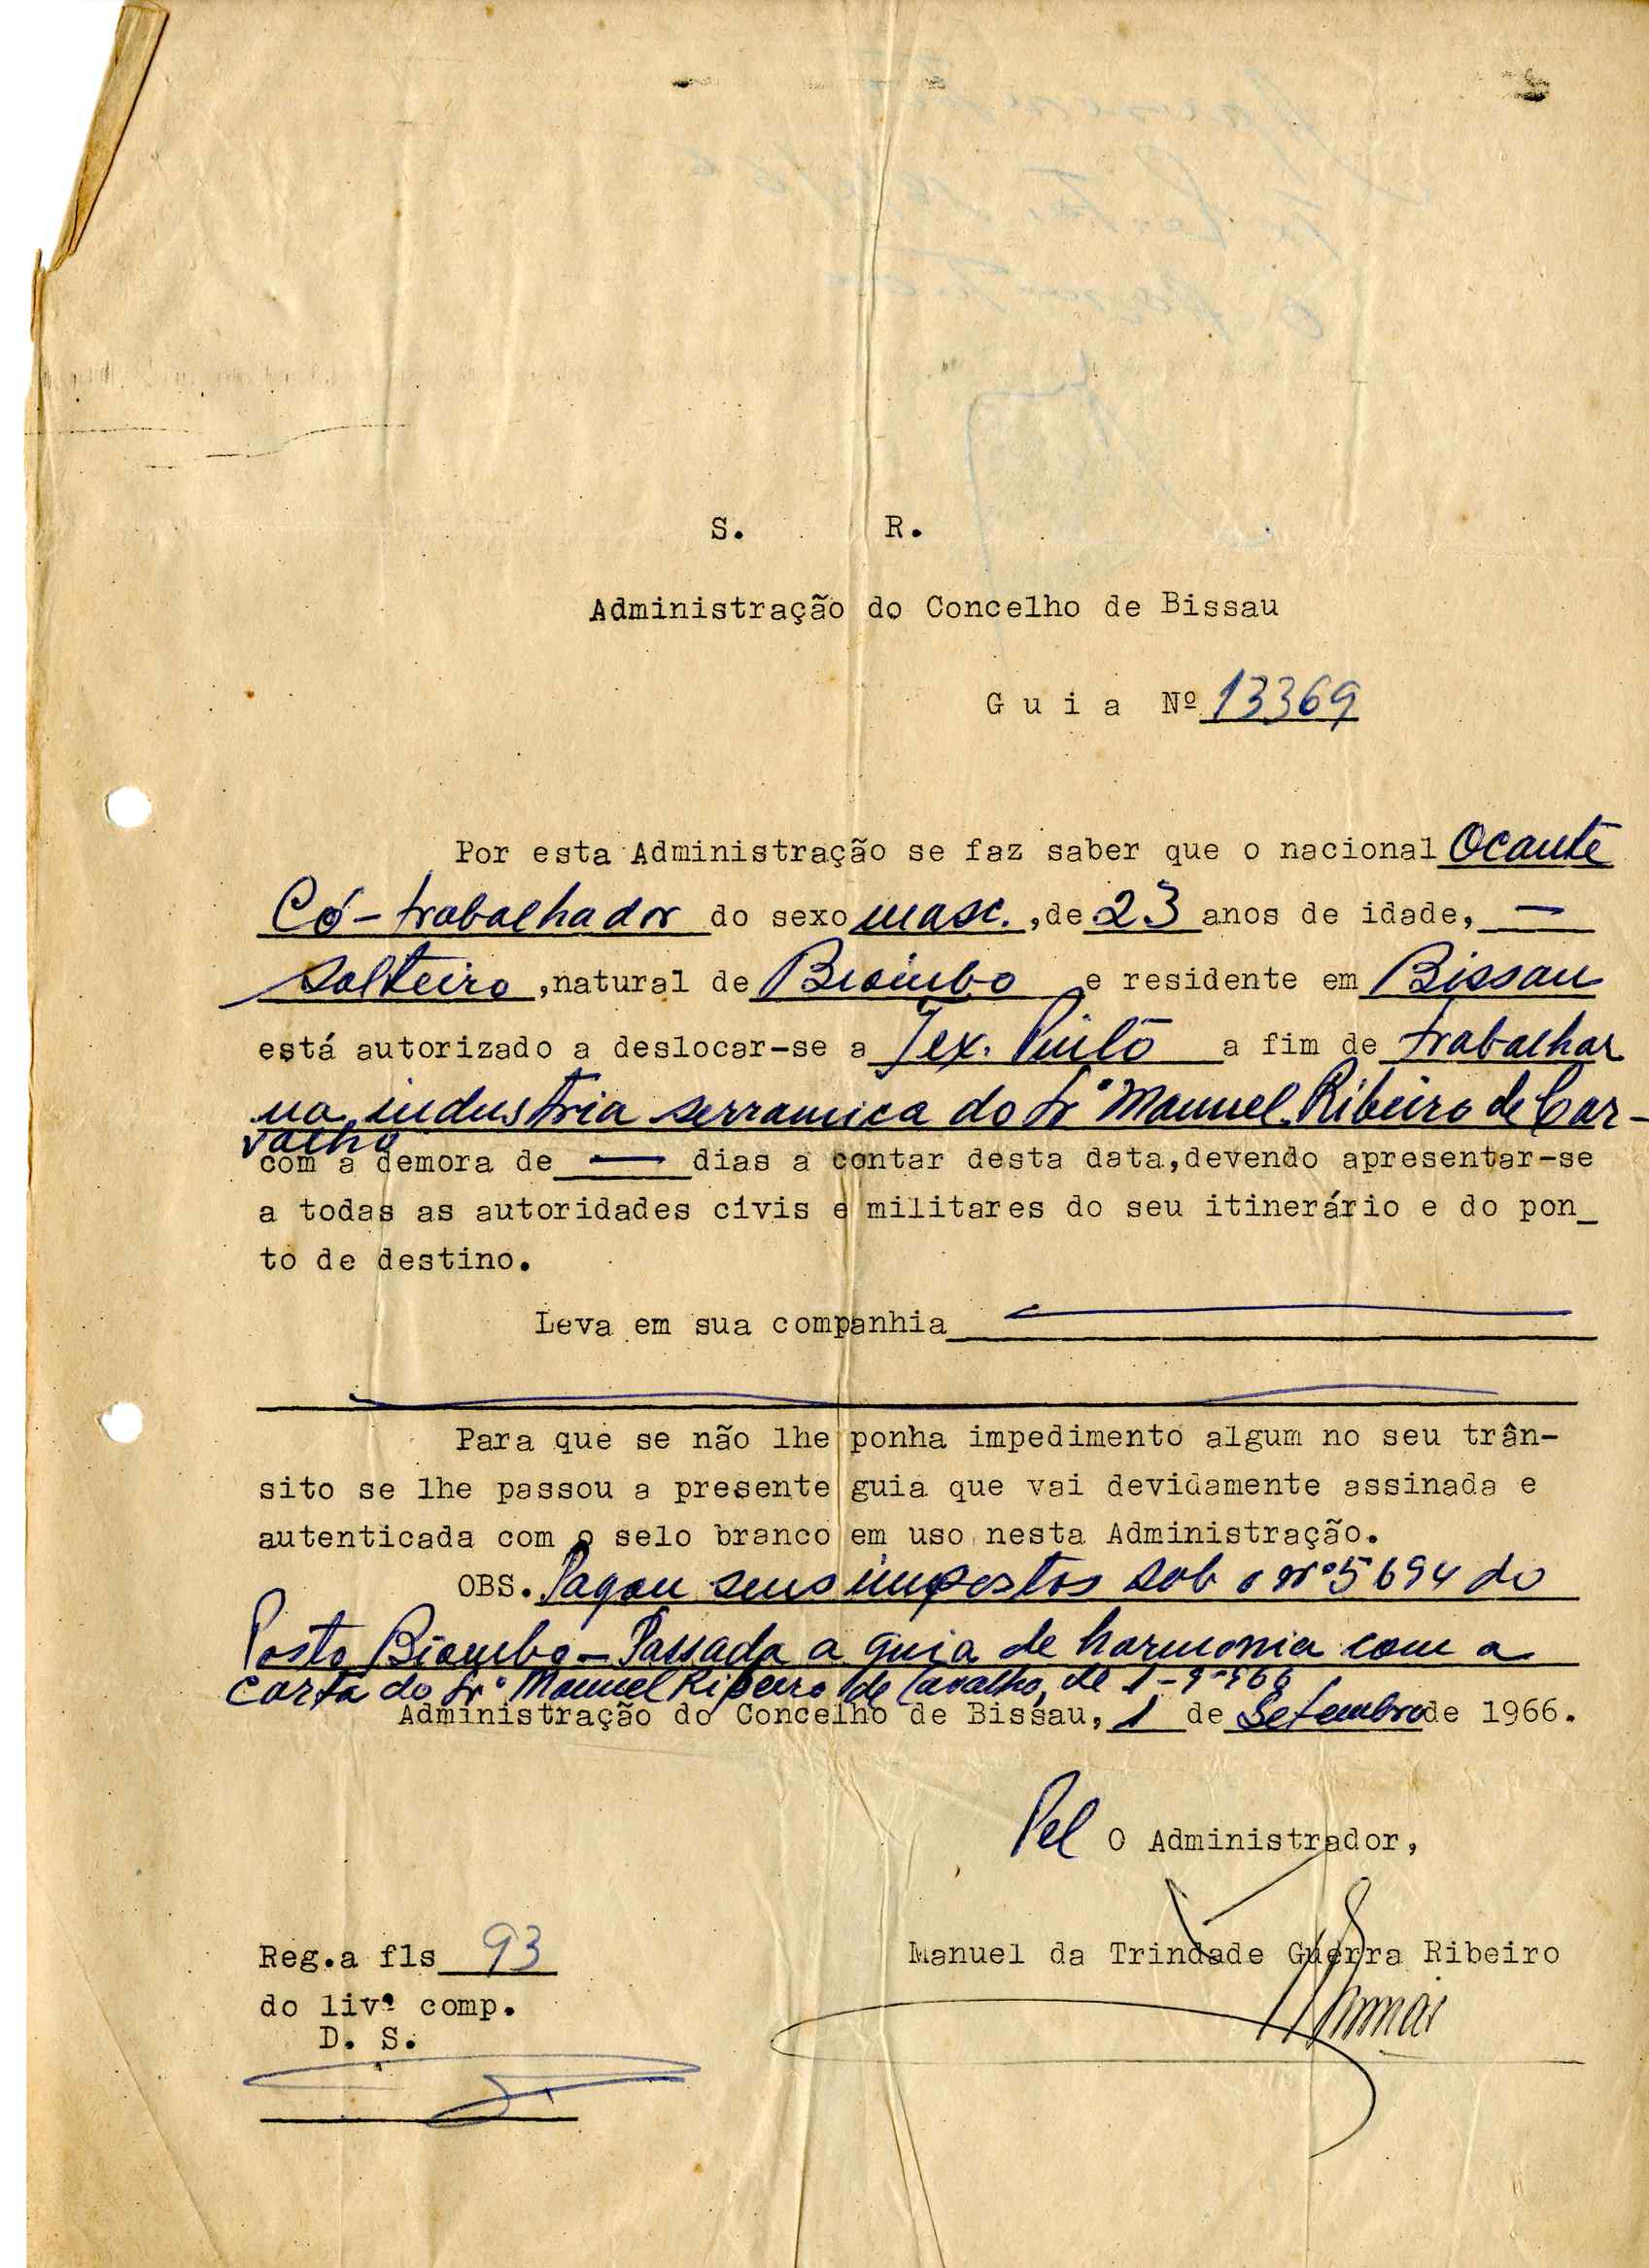 S. R.
Administração do Concelho de Bissau
G u i a Nº 13369
Por esta Administração se faz saber que o nacional Ocante
Có - trabalhador do sexo masc. ,de 23 anos de idade, —
solteiro ,natural de Biombo e residente em Bissau
está autorizado a deslocar-se a Tex. Pinto a fim de trabalhar
na industria serramica do Srº Manuel Ribeiro de Car-
valho
com a demora de — dias a contar desta data,devendo apresentar-se
a todas as autoridades civis e militares do seu itinerário e do pon_
to de destino.
Leva em sua companhia
Para que se não lhe ponha impedimento algum no seu trân-
sito se lhe passou a presente guia que vai devidamente assinada e
autenticada com o selo branco em uso nesta Administração.
OBS. Pagou seus impostos sob o nº 5694 do
Posto Biombo - Passada a guia de harmonia com a
carta do Srº Manuel Ribeiro de Cavalho, de 1-9-966
Administração do Concelho de Bissau, 1 de Setembro de 1966.
Pel O Administrador,
Manuel da Trindade Guerra Ribeiro
Reg.a fls 93
do livº comp.
D. S.